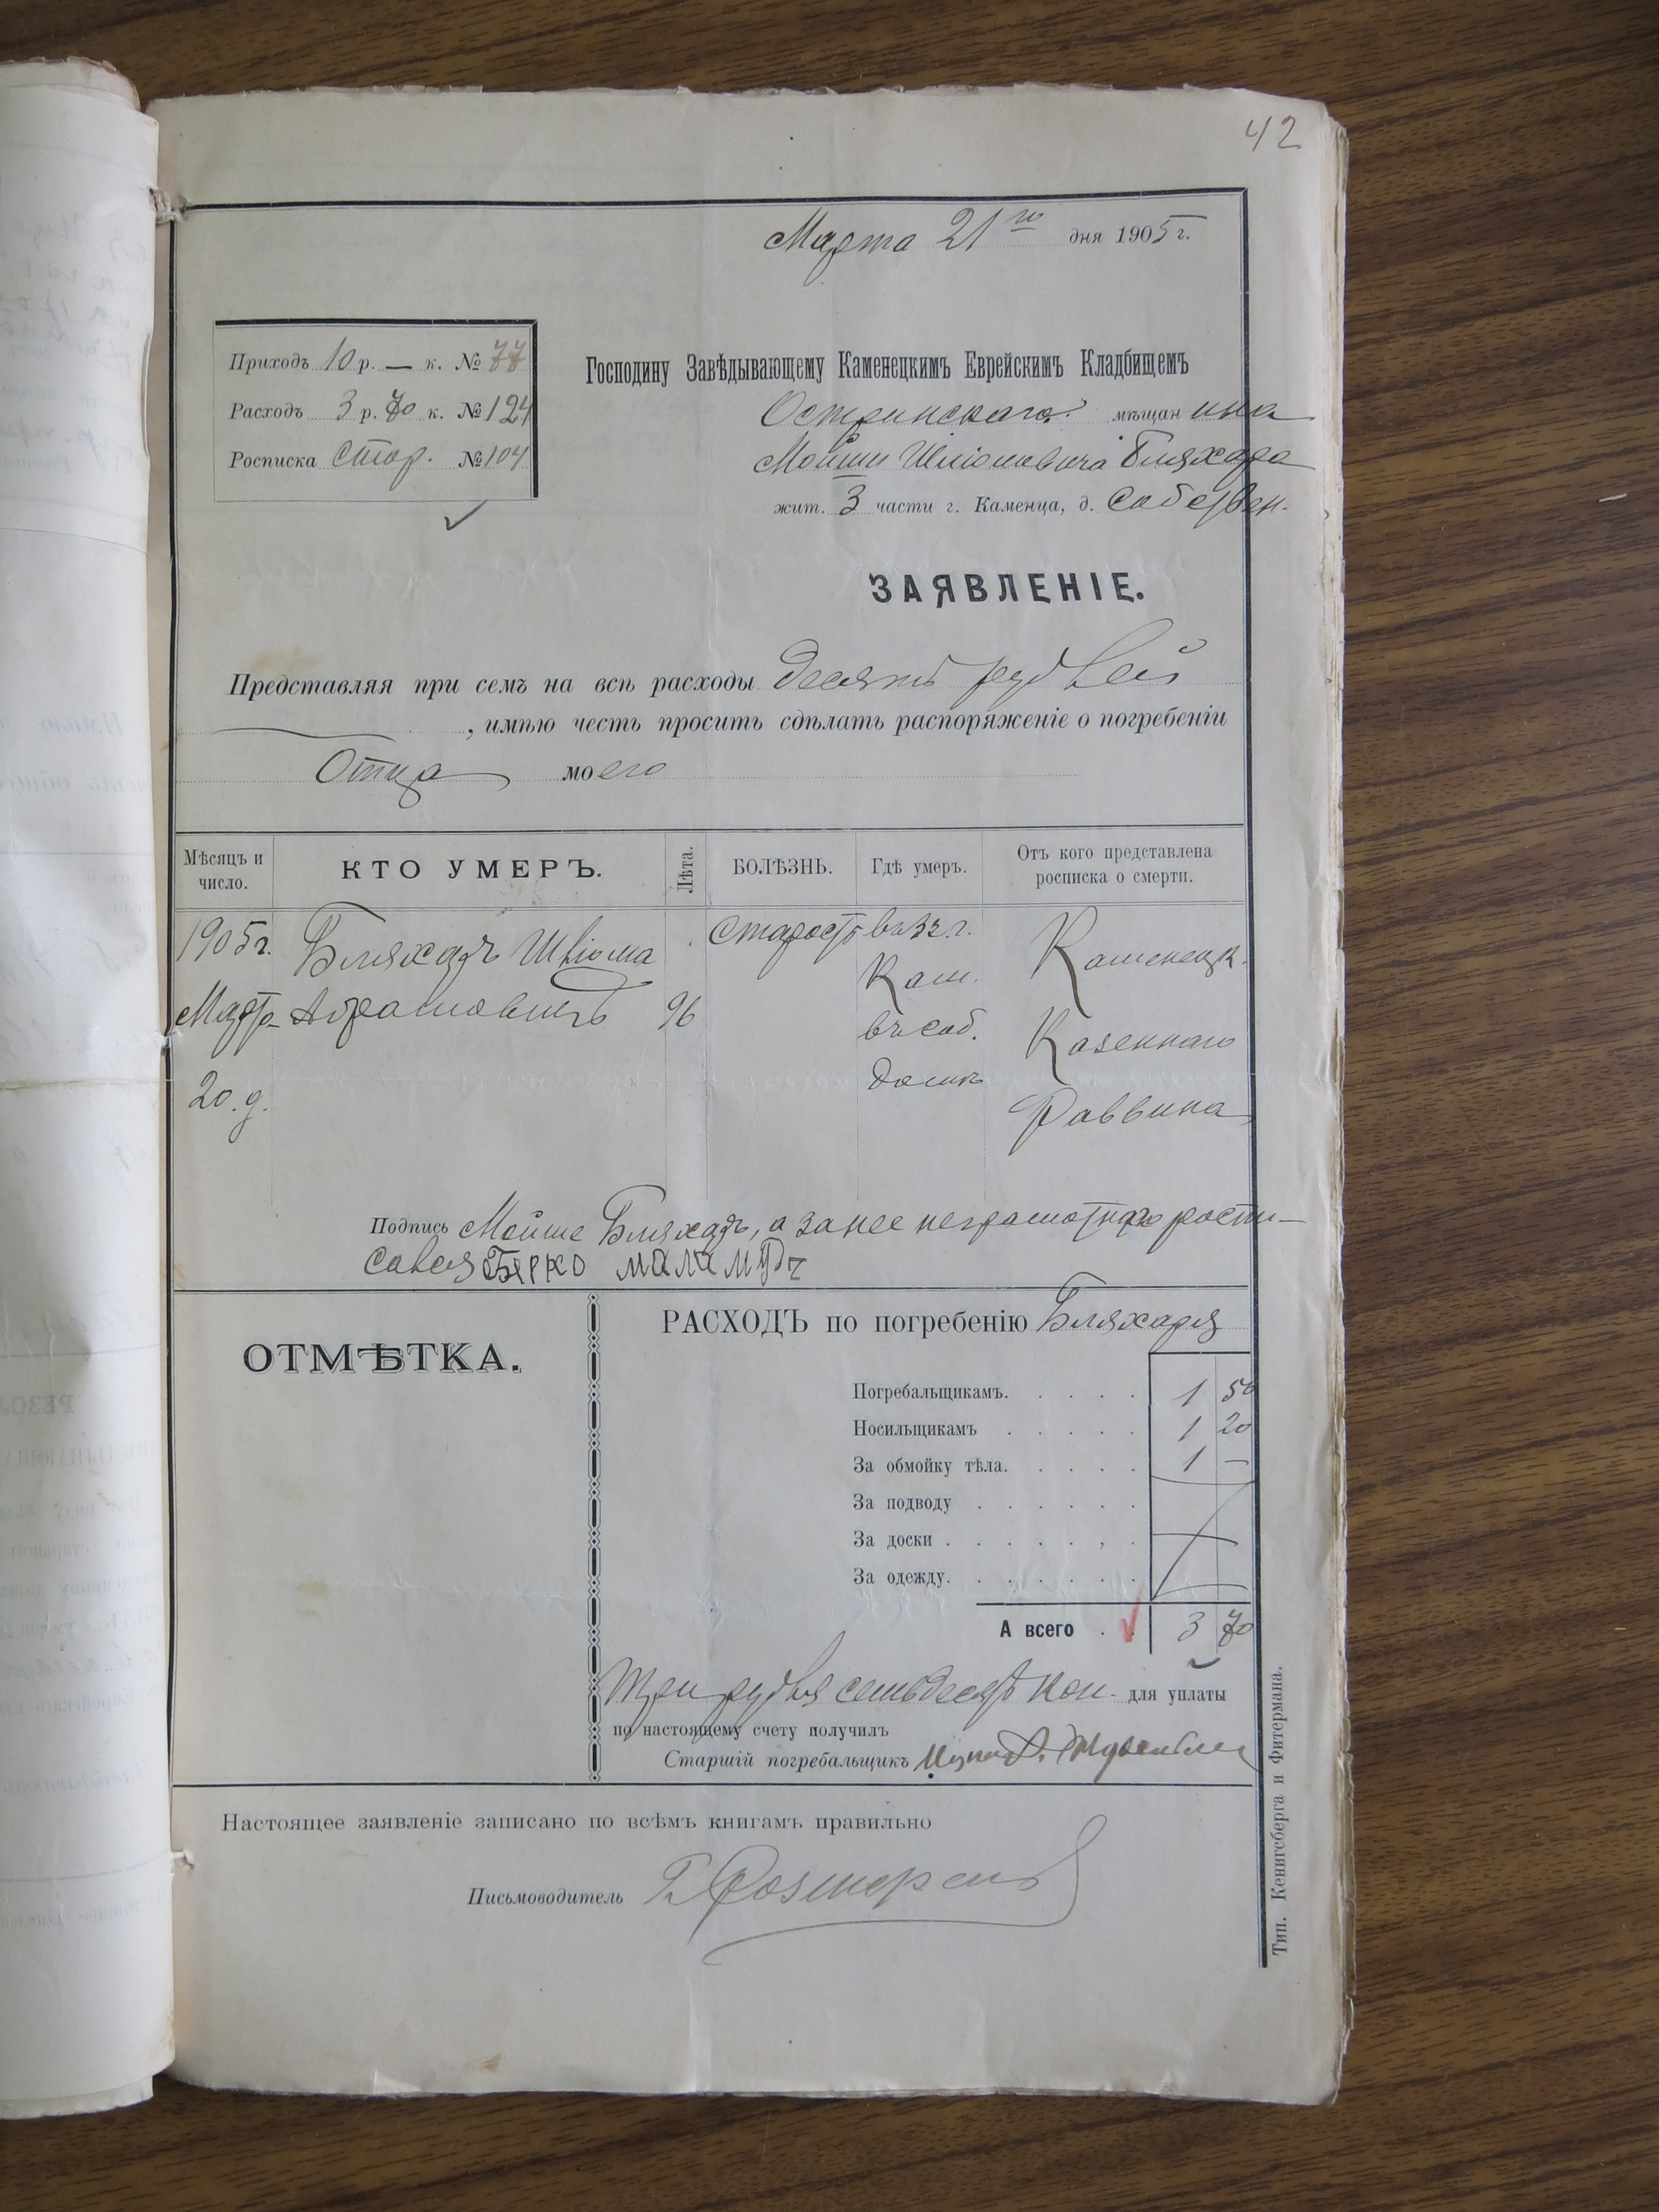 42
Марта 21го дня 1905 г.
Приходъ 10 р. — к. № 77
Расходъ 3 р. 70 к. № 124
Росписка Стар. № 104
Господину Завѣдывающему Каменецкимъ Еврейскимъ Кладбищемъ
мѣщанина
Мойши Шліомовича Бляхара
жит. 3 части г. Каменца, д. Собствен.
ЗАЯВЛЕНІЕ.
Представляя при семъ на всѣ расходы десять рублей
, имѣю честь просить сдѣлать распоряженіе о погребеніи
Отца моего
Мѣсяцъ и число.
КТО УМЕРЪ.
Лѣта.
БОЛѢЗНЬ.
Гдѣ умеръ.
Отъ кого представлена росписка о смерти.
1905 г. Бляхаръ Шліома старость
Кам. Каменецк.
Март. Абрамовичъ 96
въ соб. Казеннаго
20. д. домѣ Раввина
Подпись Мойше Бляхаръ, а за нее неграмотнаго роспи-
сался Берко маламудъ
ОТМѢТКА.
РАСХОДЪ по погребенію Бляхара
Погребальщикамъ. 1 50
Носильщикамъ 1 20
За обмойку тѣла. 1 —
За подводу
За доски
За одежду.
А всего 3 70
Три рубля семьдесятъ коп. для уплаты
по настоящему счету получилъ
Старшій погребальщикъ
Настоящее заявленіе записано по всѣмъ книгамъ правильно
Письмоводитель
Тип. Кенигсберга и Фитермана.